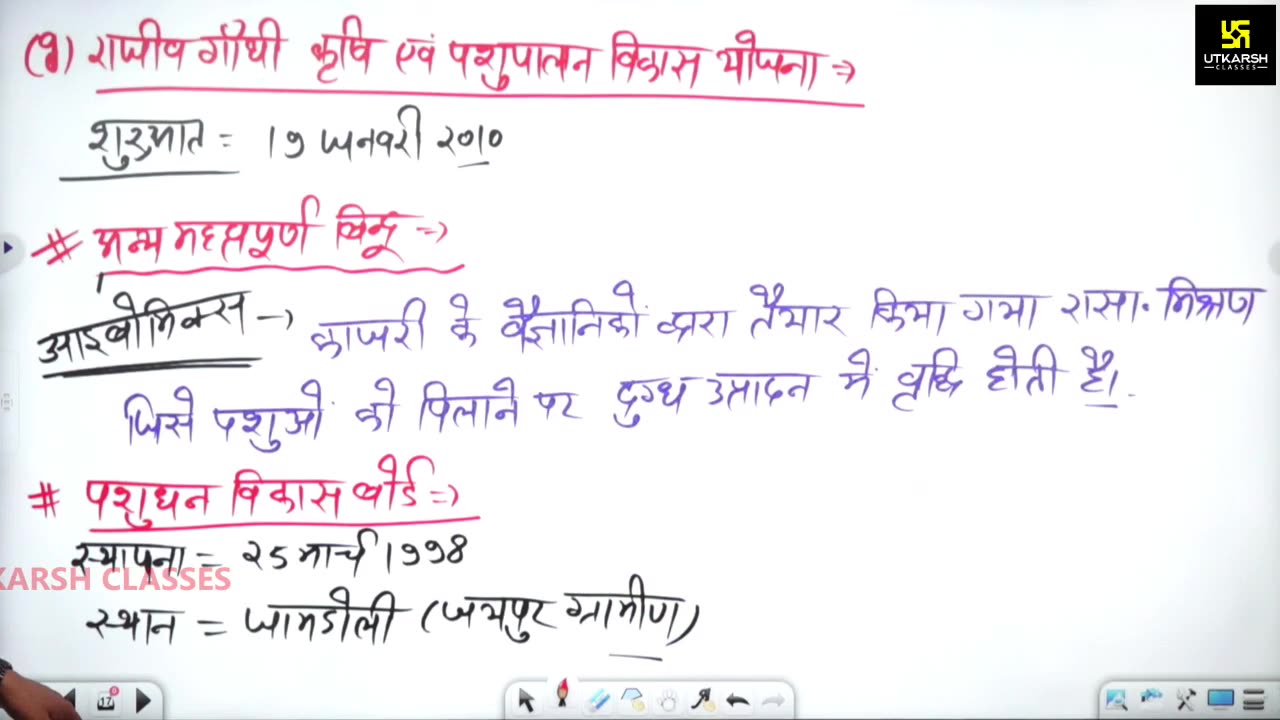 (9) राजीव गाँधी कृषि एवं पशुपालन विकास योजना →
UTKARSH
CLASSES
शुरुआत = 19 जनवरी २०१०
# अन्य महत्वपूर्ण बिन्दु →
आइवोमिक्स → काजरी के वैज्ञानिकों द्वारा तैयार किया गया रासा. मिश्रण
जिसे पशुओं को पिलाने पर दुग्ध उत्पादन में वृद्धि होती है।
# पशुधन विकास बोर्ड →
स्थापना = २5 मार्च 1998
KARSH CLASSES
स्थान = जामडोली (जयपुर ग्रामीण)
17